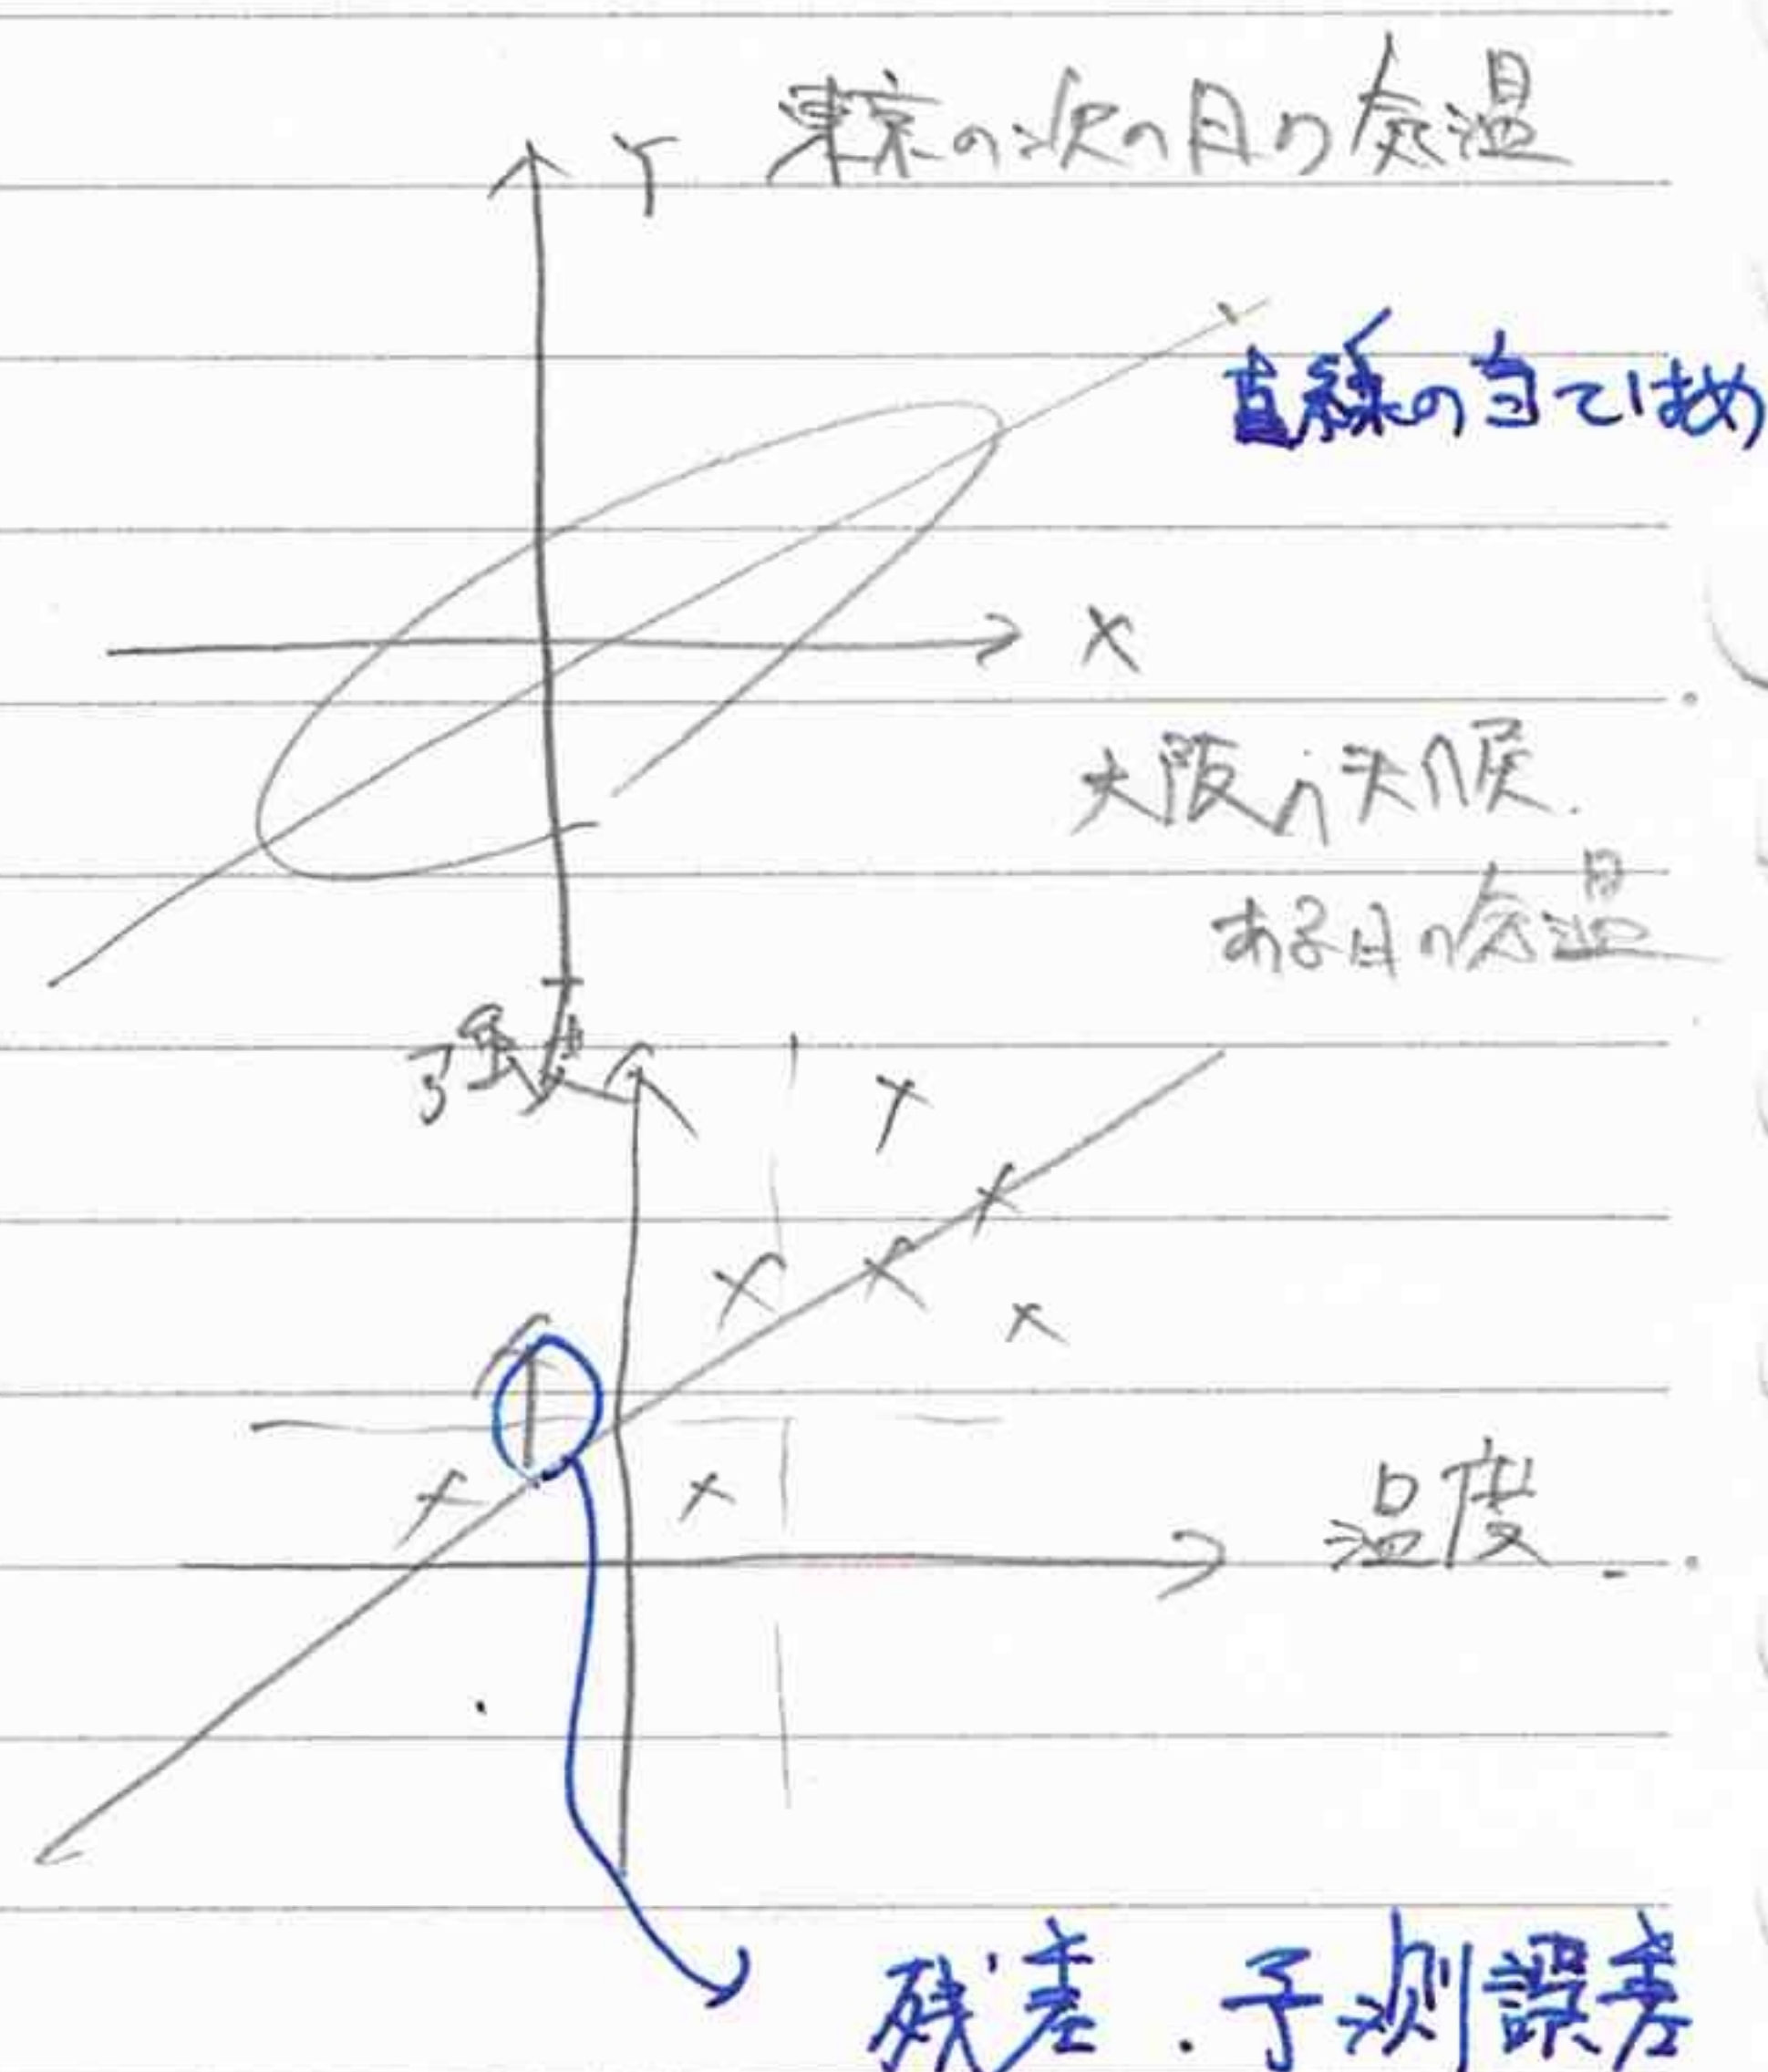 Y 東京の次の日の気温
直線の当てはめ
X
大阪の天候.
ある日の気温
強度
温度.
残差.予測誤差